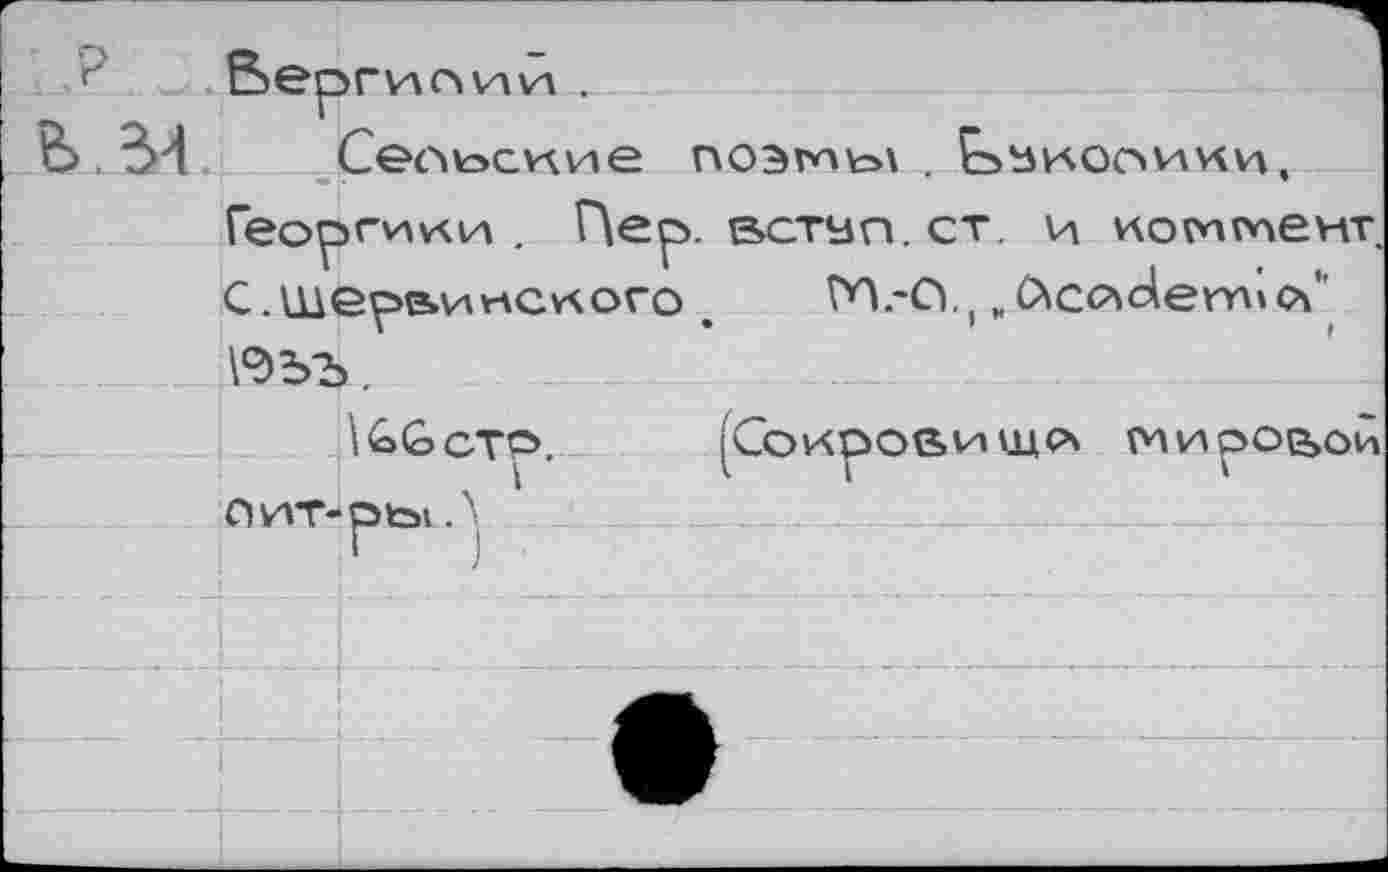 Р Вергилий.
В.31 Сельские поэмы. Буколики,
Георгики. Пер. вступ. ст. и коммент.
С. Шервинского. М.-Л., „Academia",
1933.
166 стр. (Сокровища мировой
лит-ры.)